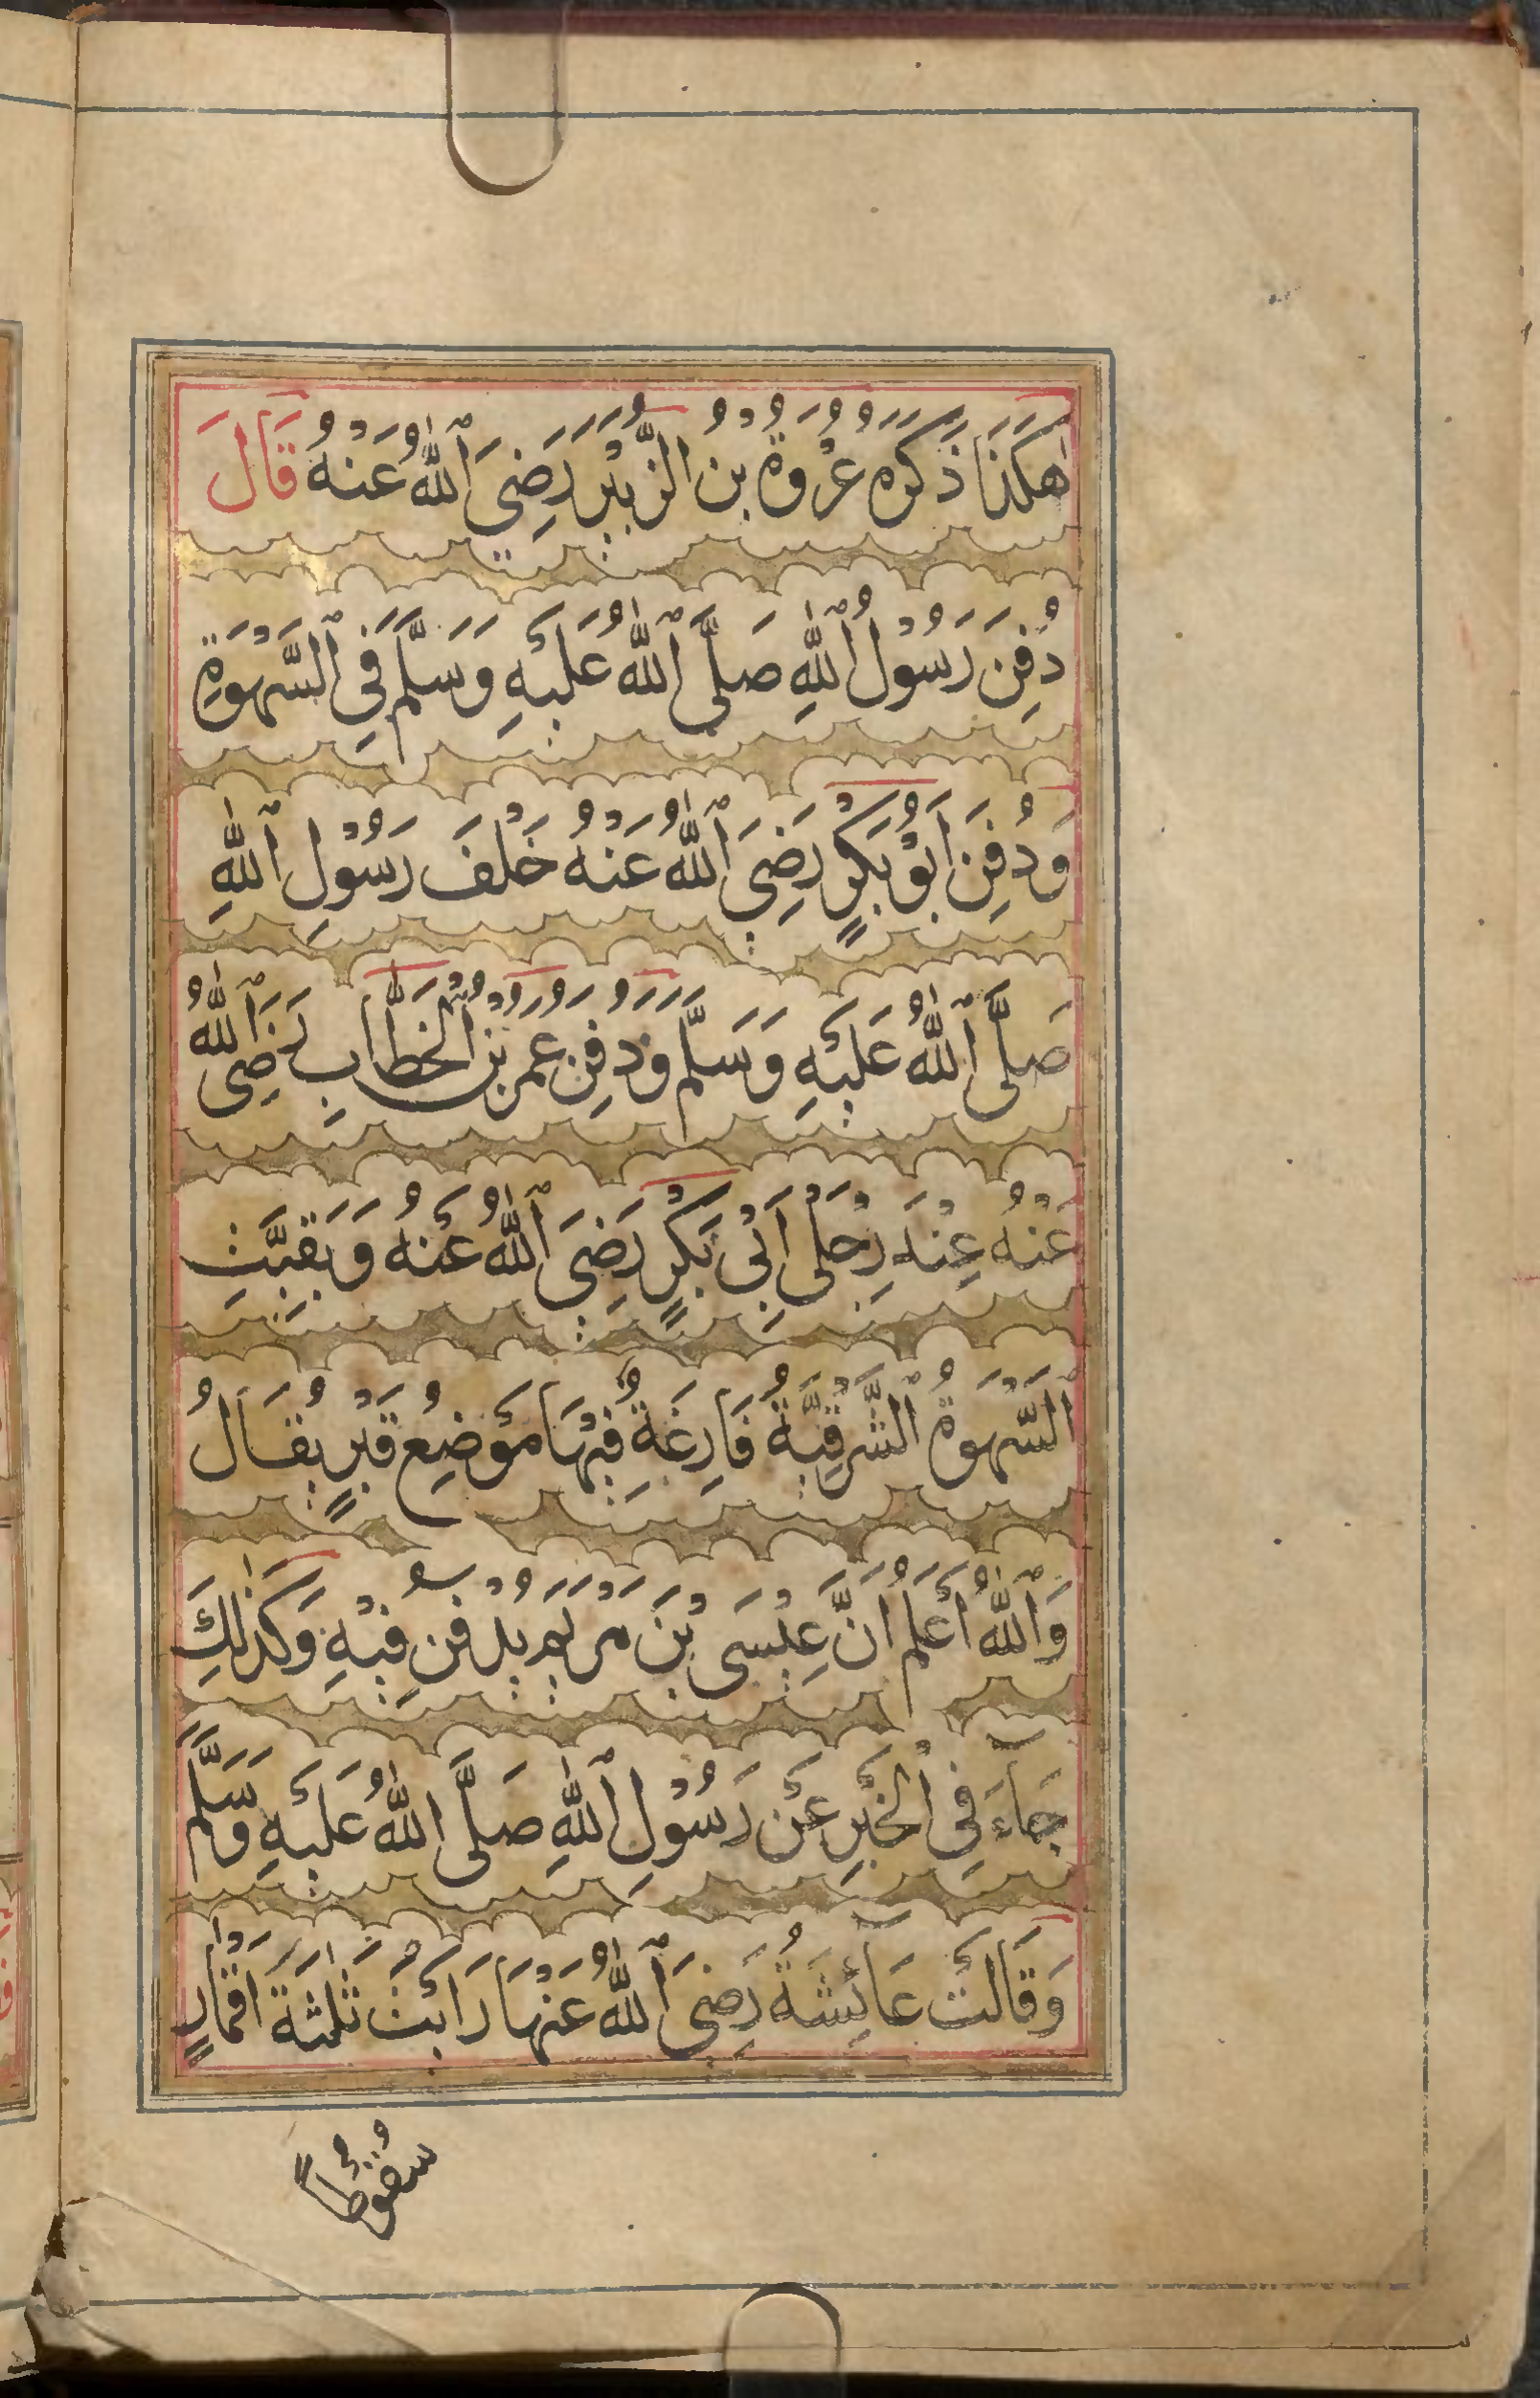 هٰكَذَا ذَكَرَهُ عُرْوَةُ بْنُ الزُّبَيْرِ رَضِيَ اللّٰهُ عَنْهُ قَالَ
دُفِنَ رَسُوْلُ اللّٰهِ صَلَّى اللّٰهُ عَلَيْهِ وَسَلَّمَ فِي السَّهْوَةِ
وَدُفِنَ اَبُوْ بَكْرٍ رَضِيَ اللّٰهُ عَنْهُ خَلْفَ رَسُوْلِ اللّٰهِ
صَلَّى اللّٰهُ عَلَيْهِ وَسَلَّمَ وَدُفِنَ عُمَرُ بْنُ الْخَطَّابِ رَضِيَ اللّٰهُ
عَنْهُ عِنْدَ رِجْلَيْ اَبِيْ بَكْرٍ رَضِيَ اللّٰهُ عَنْهُ وَبَقِيَتِ
السَّهْوَةُ الشَّرْقِيَّةُ فَارِغَةٌ فِيْهَا مَوْضِعُ قَبْرٍ يُقَالُ
وَاللّٰهُ اَعْلَمُ اَنَّ عِيْسَى بْنَ مَرْيَمَ يُدْفَنُ فِيْهِ وَكَذٰلِكَ
جَآءَ فِي الْخَبَرِ عَنْ رَسُوْلِ اللّٰهِ صَلَّى اللّٰهُ عَلَيْهِ وَسَلَّمَ
وَقَالَتْ عَآئِشَةُ رَضِيَ اللّٰهُ عَنْهَا رَاَيْتُ ثَلٰثَةَ اَقْمَارٍ
سُقُوْطًا